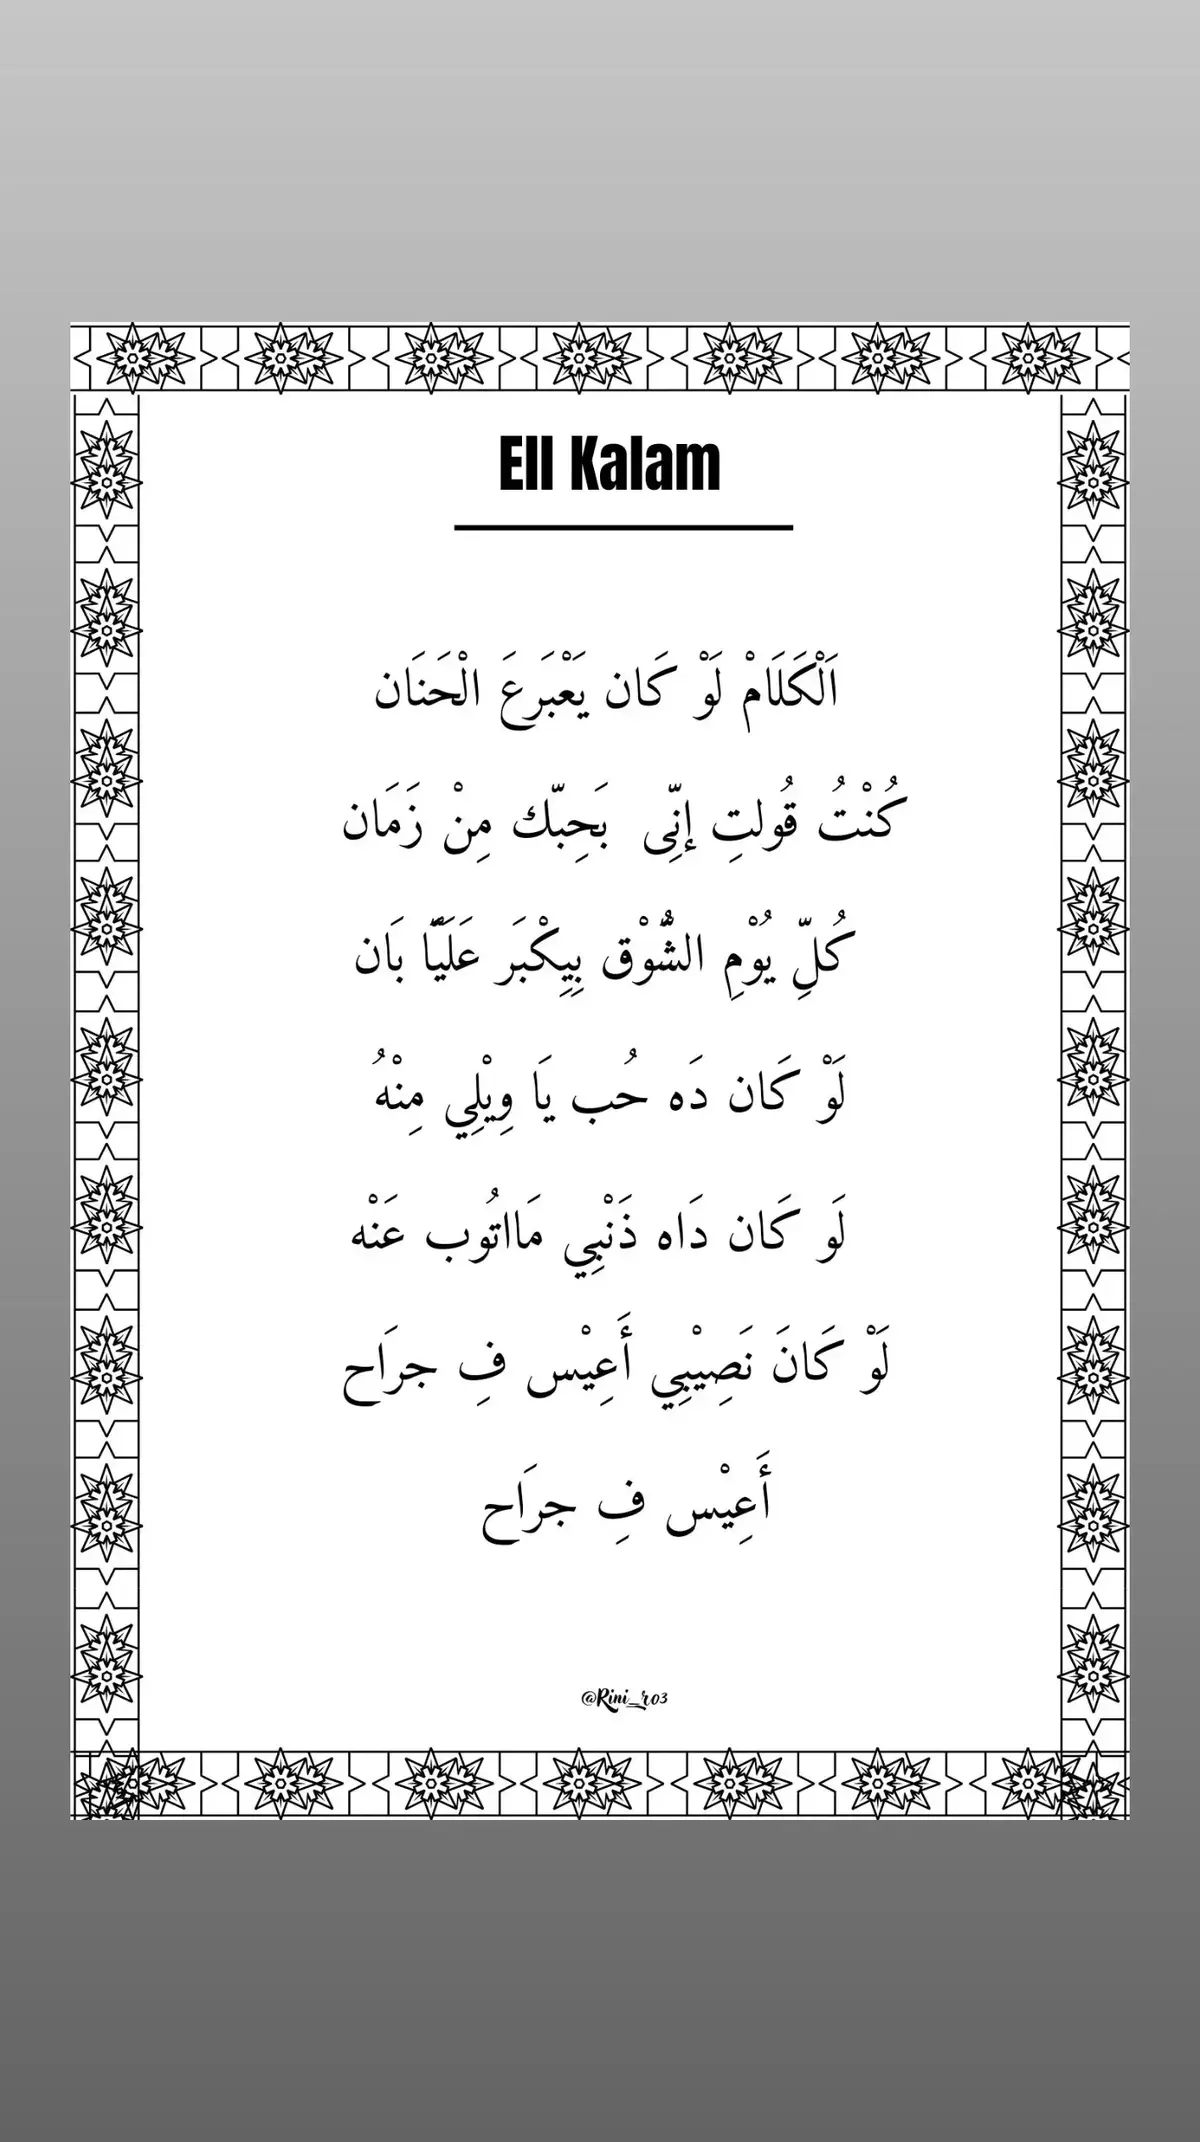 Ell Kalam
اَلْكَلَامْ لَوْ كَان يَعْبَرعَ الْحَنَان
كُنْتُ قُولتِ إنِّى بَحِبّك مِنْ زَمَان
كُلِّ يُوْمِ الشُّوْق بِيِكْبَر عَلَيَّا بَان
لَوْ كَان دَه حُب يَا وِيْلِي مِنْهُ
لَو كَان دَاه ذَنْبِي مَااتُوب عَنْه
لَوْ كَانَ نَصِيْبِي أَعِيْس فِ جرَاح
أَعِيْس فِ جرَاح
@Rini_r03